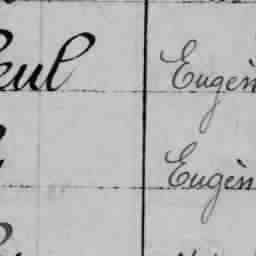 eul Eugèn
Eugèn